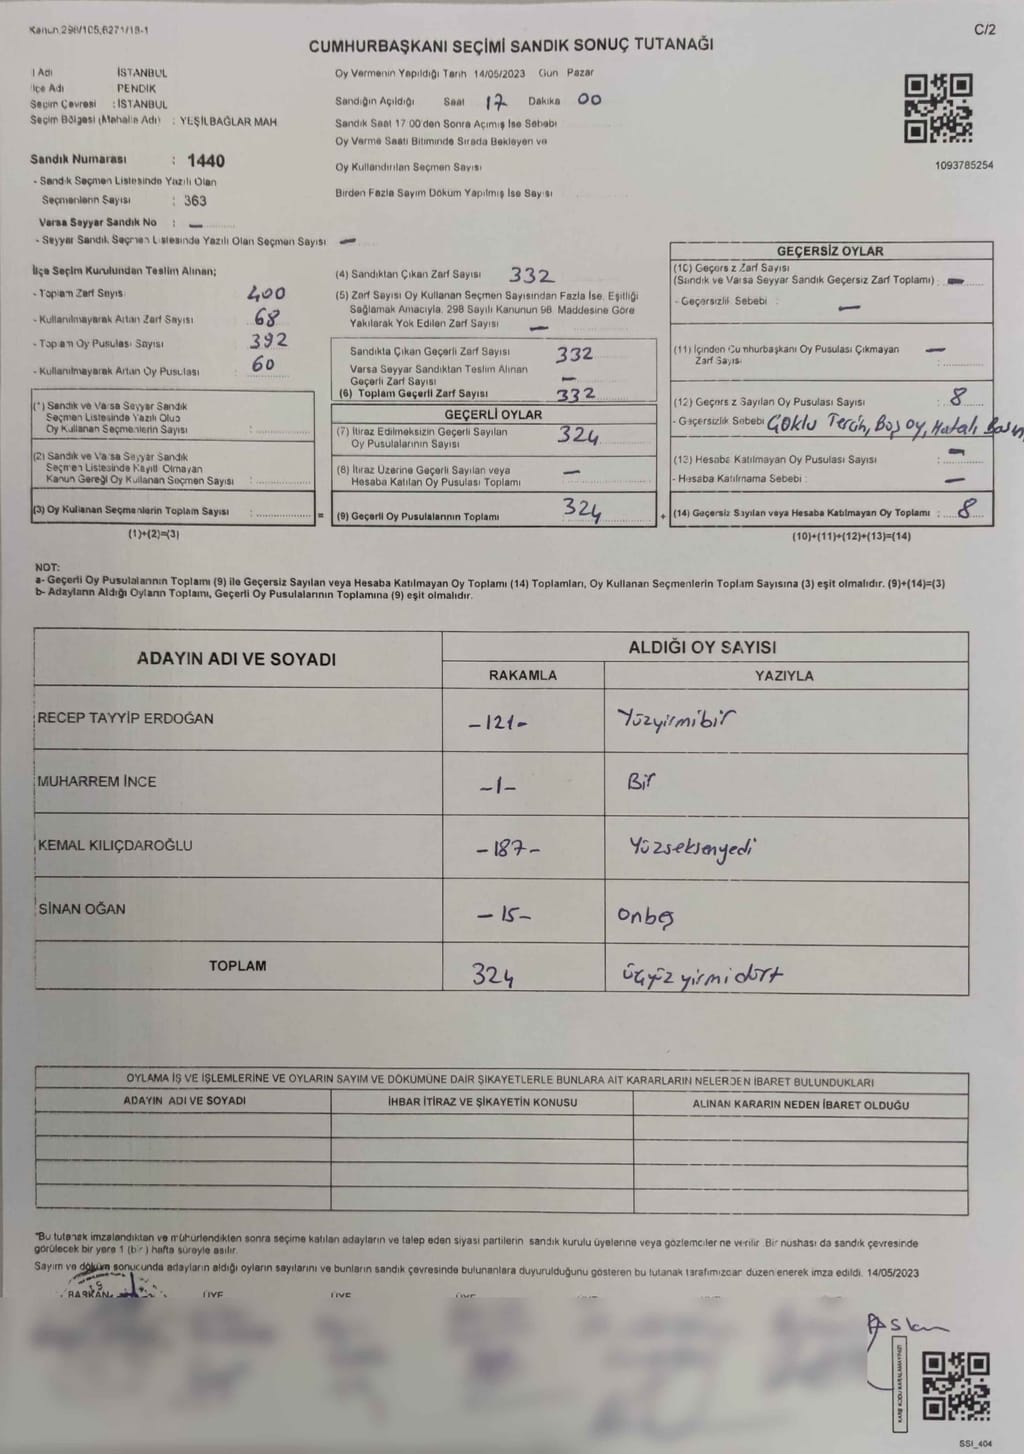 Kanun 298/105,6271/18-1
C/2
CUMHURBAŞKANI SEÇİMİ SANDIK SONUÇ TUTANAĞI
İl Adı İSTANBUL
İlçe Adı PENDİK
Seçim Çevresi : İSTANBUL
Seçim Bölgesi (Mahalle Adı) : YEŞİLBAĞLAR MAH
Oy Vermenin Yapıldığı Tarih 14/05/2023 Gün Pazar
Sandığın Açıldığı Saat 17 Dakika 00
Sandık Saat 17 00'den Sonra Açılmış İse Sebebi
Oy Verme Saati Bitiminde Sırada Bekleyen ve
Oy Kullandırılan Seçmen Sayısı
Birden Fazla Sayım Döküm Yapılmış İse Sayısı
1093785254
Sandık Numarası : 1440
- Sandık Seçmen Listesinde Yazılı Olan
Seçmenlerin Sayısı : 363
Varsa Seyyar Sandık No : —
- Seyyar Sandık Seçmen Listesinde Yazılı Olan Seçmen Sayısı —
İlçe Seçim Kurulundan Teslim Alınan;
- Toplam Zarf Sayısı 400
- Kullanılmayarak Artan Zarf Sayısı 68
- Toplam Oy Pusulası Sayısı 392
- Kullanılmayarak Artan Oy Pusulası 60
(1) Sandık ve Varsa Seyyar Sandık
Seçmen Listesinde Yazılı Olup
Oy Kullanan Seçmenlerin Sayısı :
(2) Sandık ve Varsa Seyyar Sandık
Seçmen Listesinde Kayıtlı Olmayan
Kanun Gereği Oy Kullanan Seçmen Sayısı :
(3) Oy Kullanan Seçmenlerin Toplam Sayısı : =
(1)+(2)=(3)
(4) Sandıktan Çıkan Zarf Sayısı 332
(5) Zarf Sayısı Oy Kullanan Seçmen Sayısından Fazla İse, Eşitliği
Sağlamak Amacıyla, 298 Sayılı Kanunun 98. Maddesine Göre
Yakılarak Yok Edilen Zarf Sayısı —
Sandıkta Çıkan Geçerli Zarf Sayısı 332
Varsa Seyyar Sandıktan Teslim Alınan
Geçerli Zarf Sayısı —
(6) Toplam Geçerli Zarf Sayısı 332
GEÇERLİ OYLAR
(7) İtiraz Edilmeksizin Geçerli Sayılan
Oy Pusulalarının Sayısı 324
(8) İtiraz Üzerine Geçerli Sayılan veya
Hesaba Katılan Oy Pusulası Toplamı —
(9) Geçerli Oy Pusulalarının Toplamı 324 +
GEÇERSİZ OYLAR
(10) Geçersiz Zarf Sayısı
(Sandık ve Varsa Seyyar Sandık Geçersiz Zarf Toplamı) : —
- Geçersizlik Sebebi : —
(11) İçinden Cumhurbaşkanı Oy Pusulası Çıkmayan
Zarf Sayısı —
(12) Geçersiz Sayılan Oy Pusulası Sayısı : 8
- Geçersizlik Sebebi Çoklu Tercih, Boş oy, Hatalı Basım
(13) Hesaba Katılmayan Oy Pusulası Sayısı : —
- Hesaba Katılmama Sebebi : —
(14) Geçersiz Sayılan veya Hesaba Katılmayan Oy Toplamı : 8
(10)+(11)+(12)+(13)=(14)
NOT:
a- Geçerli Oy Pusulalarının Toplamı (9) ile Geçersiz Sayılan veya Hesaba Katılmayan Oy Toplamı (14) Toplamları, Oy Kullanan Seçmenlerin Toplam Sayısına (3) eşit olmalıdır. (9)+(14)=(3)
b- Adayların Aldığı Oyların Toplamı, Geçerli Oy Pusulalarının Toplamına (9) eşit olmalıdır.
ADAYIN ADI VE SOYADI
ALDIĞI OY SAYISI
RAKAMLA YAZIYLA
RECEP TAYYİP ERDOĞAN -121- Yüzyirmibir
MUHARREM İNCE -1- Bir
KEMAL KILIÇDAROĞLU -187- Yüzseksenyedi
SİNAN OĞAN -15- onbeş
TOPLAM 324 üçyüz yirmi dört
OYLAMA İŞ VE İŞLEMLERİNE VE OYLARIN SAYIM VE DÖKÜMÜNE DAİR ŞİKAYETLERLE BUNLARA AİT KARARLARIN NELERDEN İBARET BULUNDUKLARI
ADAYIN ADI VE SOYADI İHBAR İTİRAZ VE ŞİKAYETİN KONUSU ALINAN KARARIN NEDEN İBARET OLDUĞU
"Bu tutanak imzalandıktan ve mühürlendikten sonra seçime katılan adayların ve talep eden siyasi partilerin sandık kurulu üyelerine veya gözlemcilerine verilir. Bir nüshası da sandık çevresinde
görülecek bir yere 1 (bir) hafta süreyle asılır.
Sayım ve döküm sonucunda adayların aldığı oyların sayılarını ve bunların sandık çevresinde bulunanlara duyurulduğunu gösteren bu tutanak tarafımızdan düzenlenerek imza edildi. 14/05/2023
BAŞKAN ÜYE ÜYE ÜYE
Aslan
KARE KODU KARALAMAYINIZ!
SSI_404